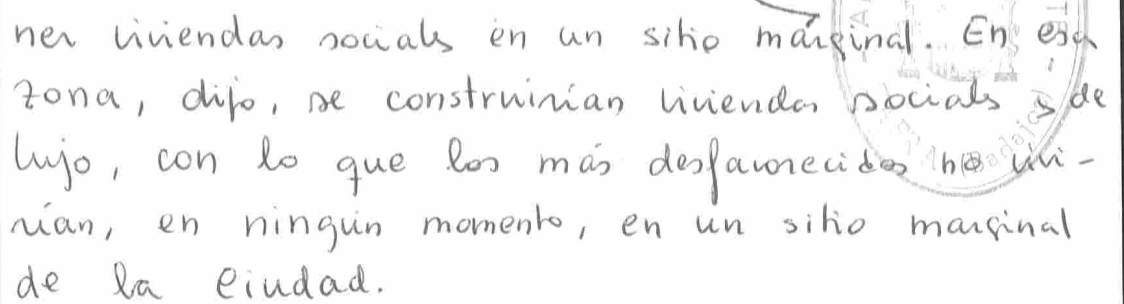 ner viviendas sociales en un sitio marginal. En esa
zona, dijo, se construirían viviendas sociales y de
lujo, con lo que los más desfavorecidos no vivi-
rían, en ningún momento, en un sitio marginal
de la ciudad.